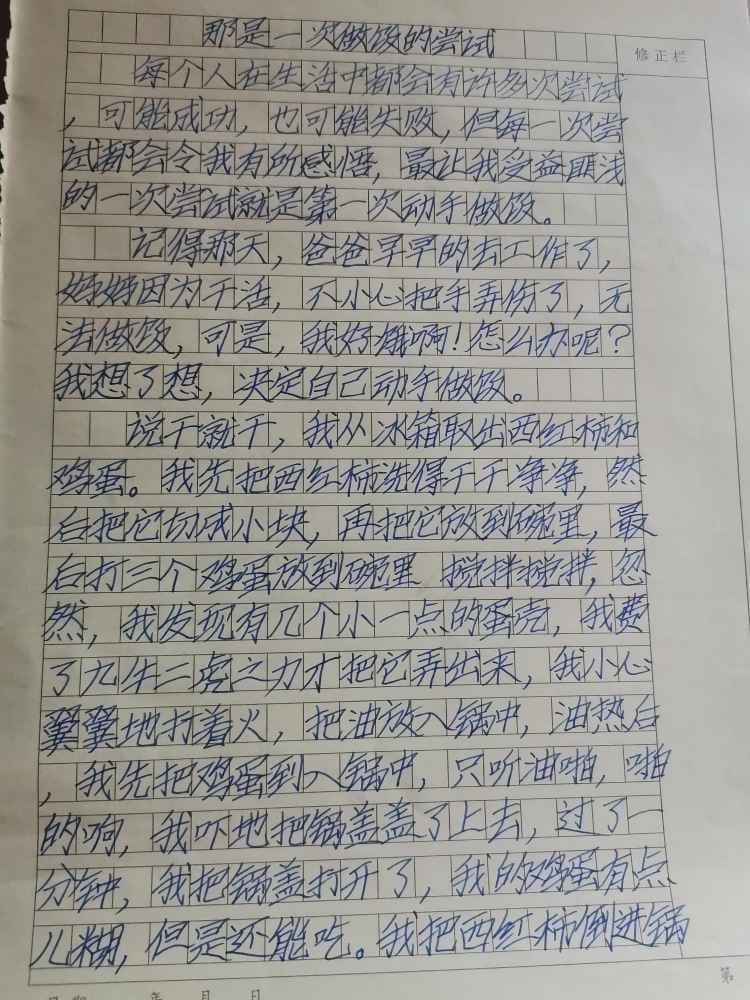 那是一次做饭的尝试
修正栏
每个人在生活中都会有许多次尝试
，可能成功，也可能失败，但每一次尝
试都会令我有所感悟，最让我受益匪浅
的一次尝试就是第一次动手做饭。
记得那天，爸爸早早的去工作了，
姊姊因为干活，不小心把手弄伤了，无
法做饭，可是，我好饿啊！怎么办呢？
我想了想，决定自己动手做饭。
说干就干，我从冰箱取出西红柿和
鸡蛋。我先把西红柿洗得干干净净，然
后把它切成小块，再把它放到碗里，最
后打三个鸡蛋放到碗里 搅拌搅拌，忽
然，我发现有几个小一点的蛋壳，我费
了九牛二虎之力才把它弄出来，我小心
翼翼地打着火，把油放入锅中，油热后
，我先把鸡蛋到入锅中，只听油啪，啪
的响，我吓地把锅盖盖了上去，过了一
分钟，我把锅盖打开了，我的鸡蛋有点
儿糊，但是还能吃。我把西红柿倒进锅
年 月 日
第